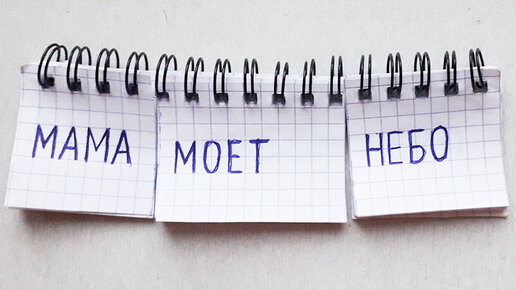 МАМА МОЕТ НЕБО